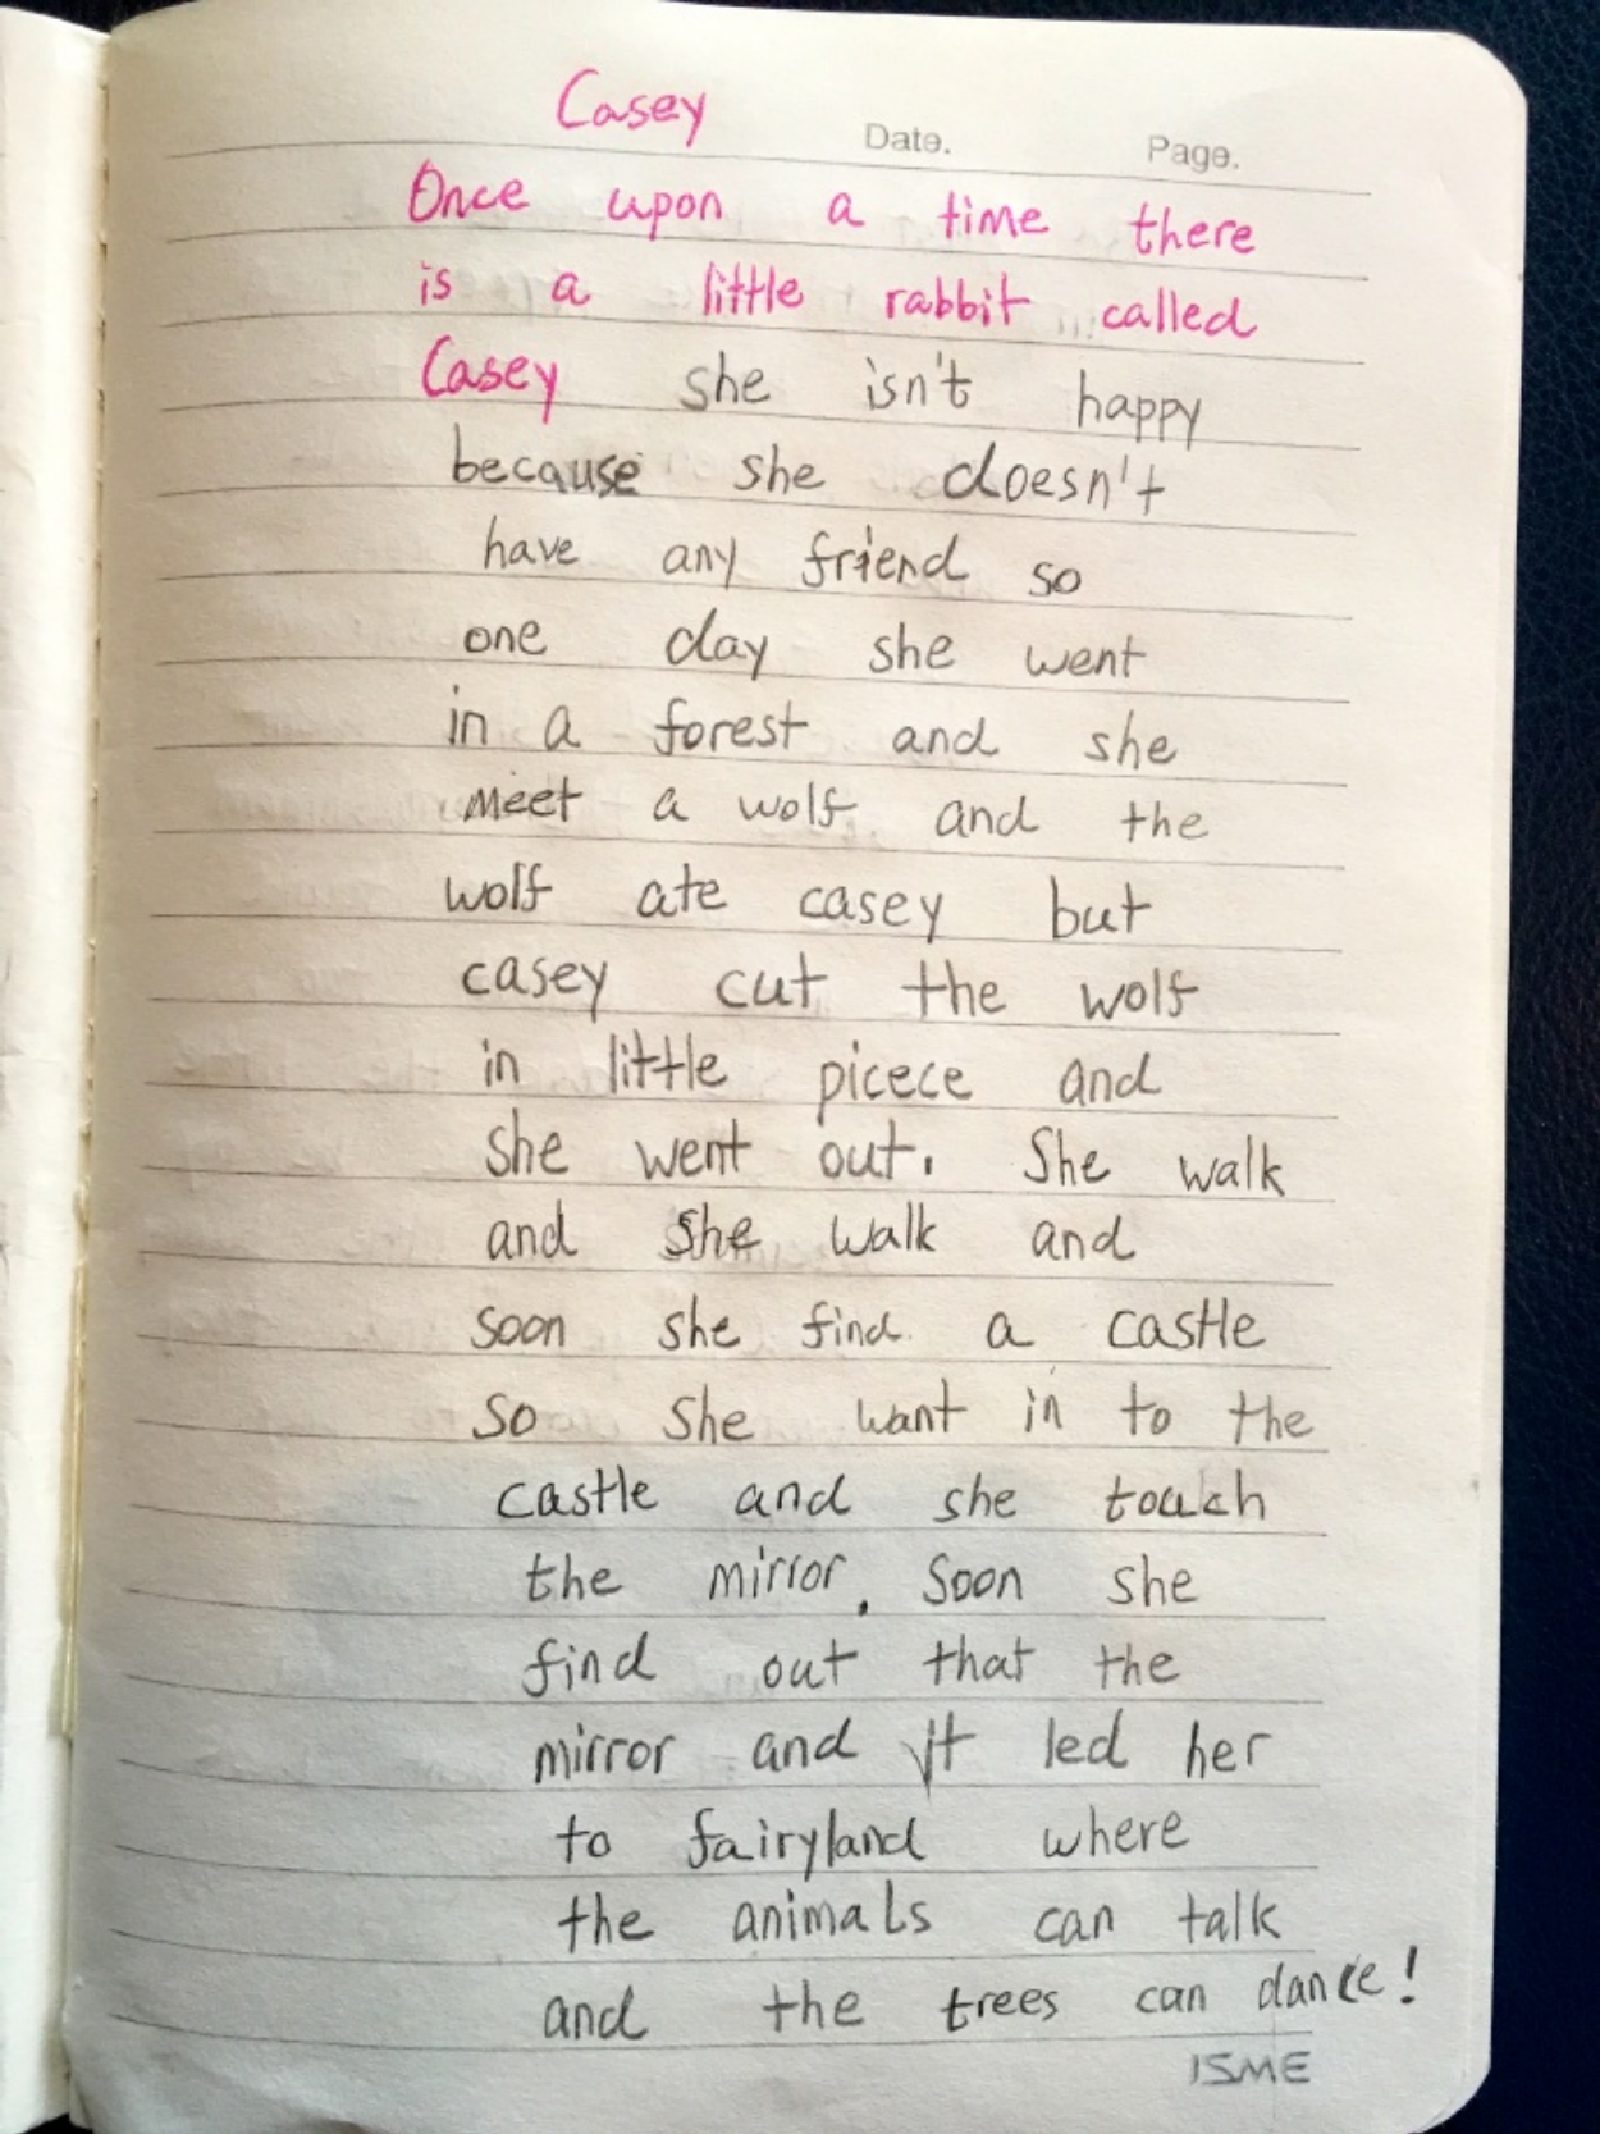 Casey
Date. Page.
Once upon a time there
is a little rabbit called
Casey she isn't happy
because she doesn't
have any friend so
one day she went
in a forest and she
meet a wolf and the
wolf ate casey but
casey cut the wolf
in little picece and
she went out. She walk
and she walk and
soon she find a castle
so she want in to the
castle and she touch
the mirror. Soon she
find out that the
mirror and it led her
to fairyland where
the animals can talk
and the trees can dance!
ISME